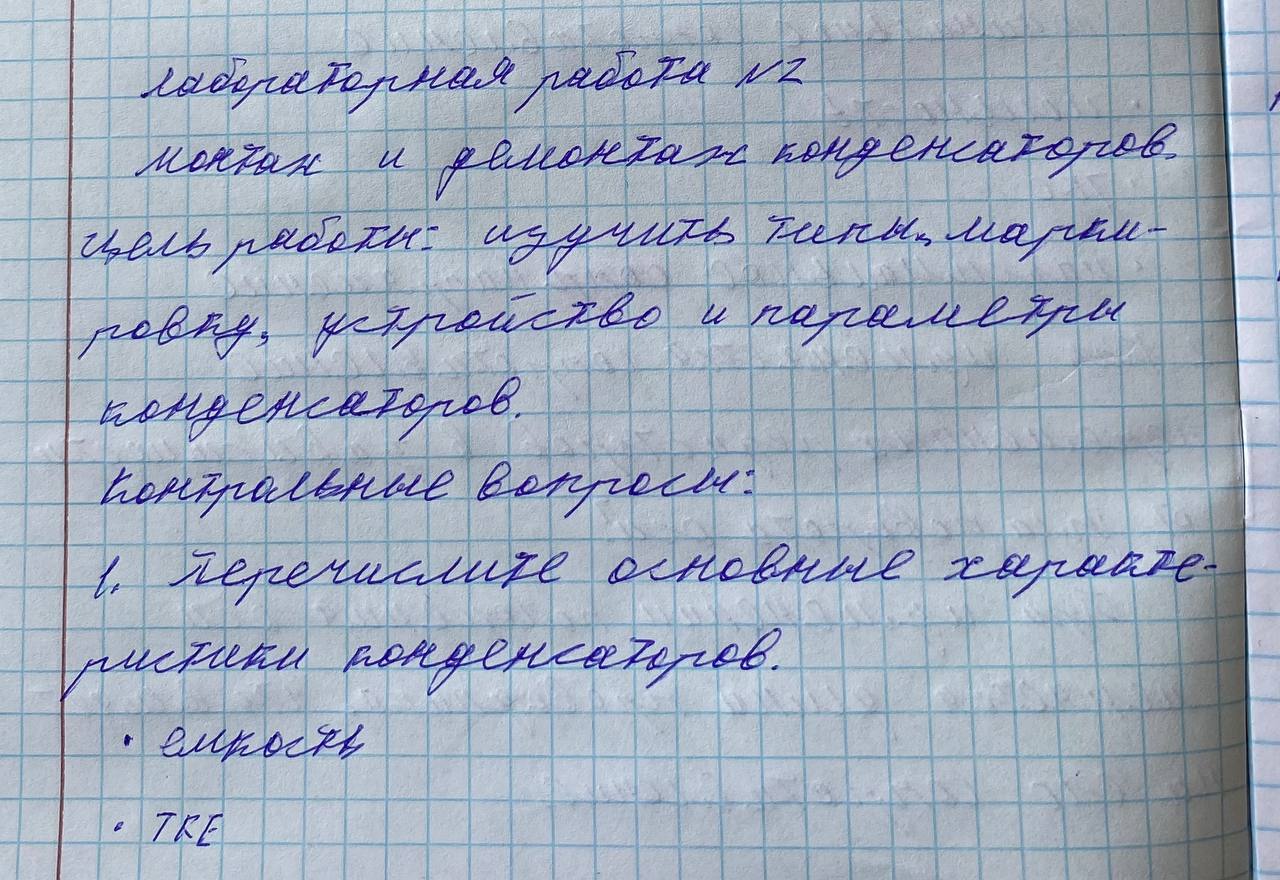 Лабораторная работа N2
Монтаж и демонтаж конденсаторов.
Цель работы: изучить типы, марки-
ровку, устройство и параметры
конденсаторов.
Контрольные вопросы:
1. Перечислите основные характе-
ристики конденсаторов.
· емкость
· ТКЕ